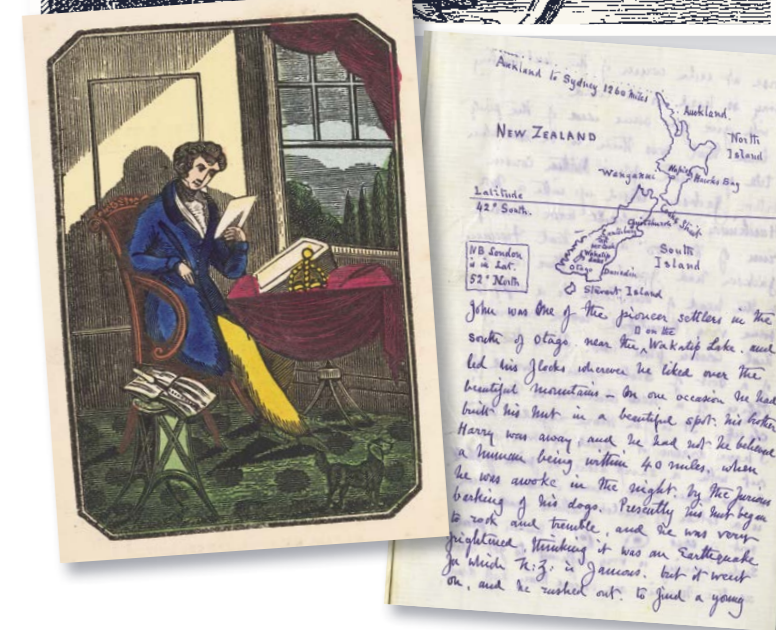 Auckland to Sydney 1260 miles
Auckland.
NEW ZEALAND
North
Island
Wanganui
Napier Hawks Bay
Latitude
42° South.
Cooks Strait
Christchurch
Canterbury
South
Island
NB London
is in Lat.
52° North
Wakatip
Lake
Otago
Dunedin
Stewart Island
John was one of the pioneer settlers in the
south of Otago near the Wakatip Lake. and
on the
led his flocks wherever he liked over the
beautiful mountains – On one occasion he had
built his hut in a beautiful spot: his brother
Harry was away, and he had not he believed
a human being within 40 miles. when
he was awoke in the night. by the furious
barking of his dogs. Presently his hut began
to rock and tremble, and he was very
frightened. thinking it was an Earthquake
for which N:Z: is famous. but it went
on, and he rushed out. to find a young